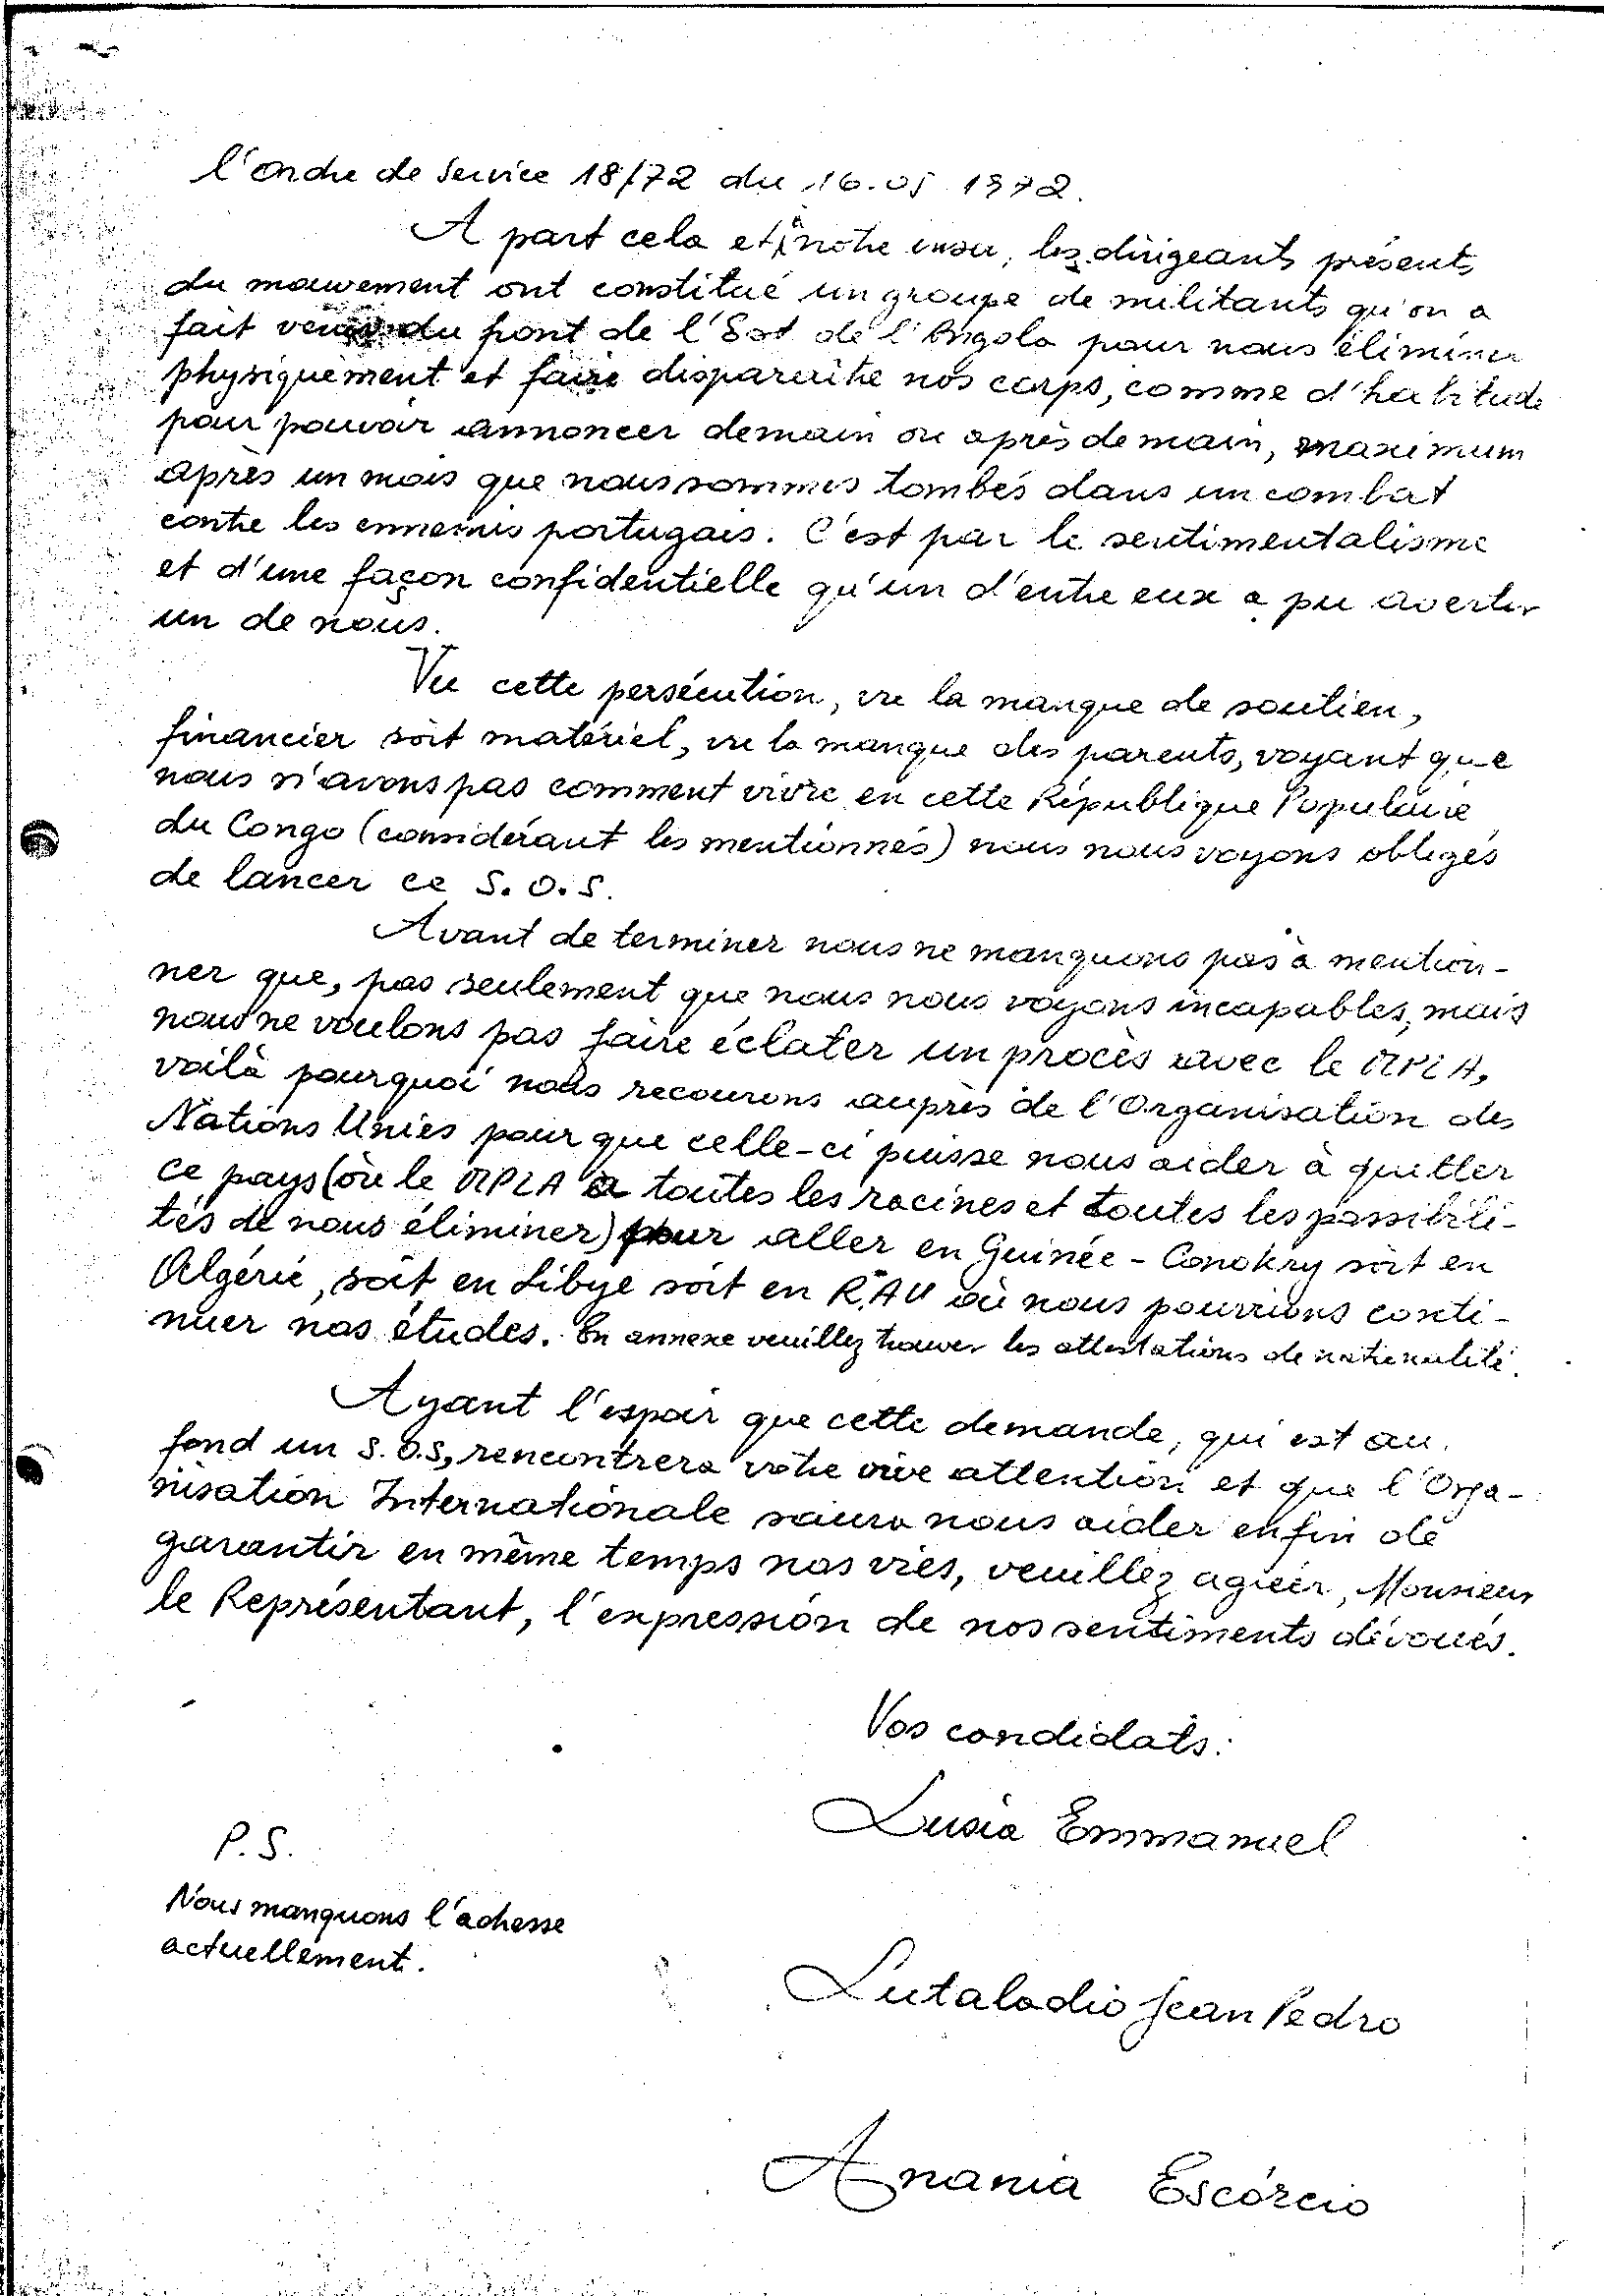 l'ordre de service 18/72 du 16.05.1972.
A part cela et à notre insu, les dirigeants présents
du mouvement ont constitué un groupe de militants qu'on a
fait venir du front de l'Est de l'Angola pour nous éliminer
physiquement et faire disparaître nos corps, comme d'habitude
pour pouvoir annoncer demain ou après demain, maximum
après un mois que nous sommes tombés dans un combat
contre les ennemis portugais. C'est par le sentimentalisme
et d'une façon confidentielle qu'un d'entre eux a pu avertir
un de nous.
Vu cette persécution, vu la manque de soutien,
financier soit matériel, vu la manque des parents, voyant que
nous n'avons pas comment vivre en cette République Populaire
du Congo (considérant les mentionnés) nous nous voyons obligés
de lancer ce S.O.S.
Avant de terminer nous ne manquons pas à mention-
ner que, pas seulement que nous nous voyons incapables, mais
nous ne voulons pas faire éclater un procès avec le MPLA,
voilà pourquoi nous recourons auprès de l'Organisation des
Nations Unies pour que celle-ci puisse nous aider à quitter
ce pays (où le MPLA a toutes les racines et toutes les possibili-
tés de nous éliminer) pour aller en Guinée - Conakry soit en
Algérie, soit en Libye soit en R.A.U où nous pourrions conti-
nuer nos études. En annexe veuillez trouver les attestations de nationalité.
Ayant l'espoir que cette demande, qui est au
fond un S.O.S, rencontrera votre vive attention et que l'Orga-
nisation Internationale saura nous aider enfin de
garantir en même temps nos vies, veuillez agréer, Monsieur
le Représentant, l'expression de nos sentiments dévoués.
Vos candidats:
Lusia Emmanuel
P.S.
Nous manquons l'adresse
actuellement.
Lutaladio Jean Pedro
Anania Escórcio